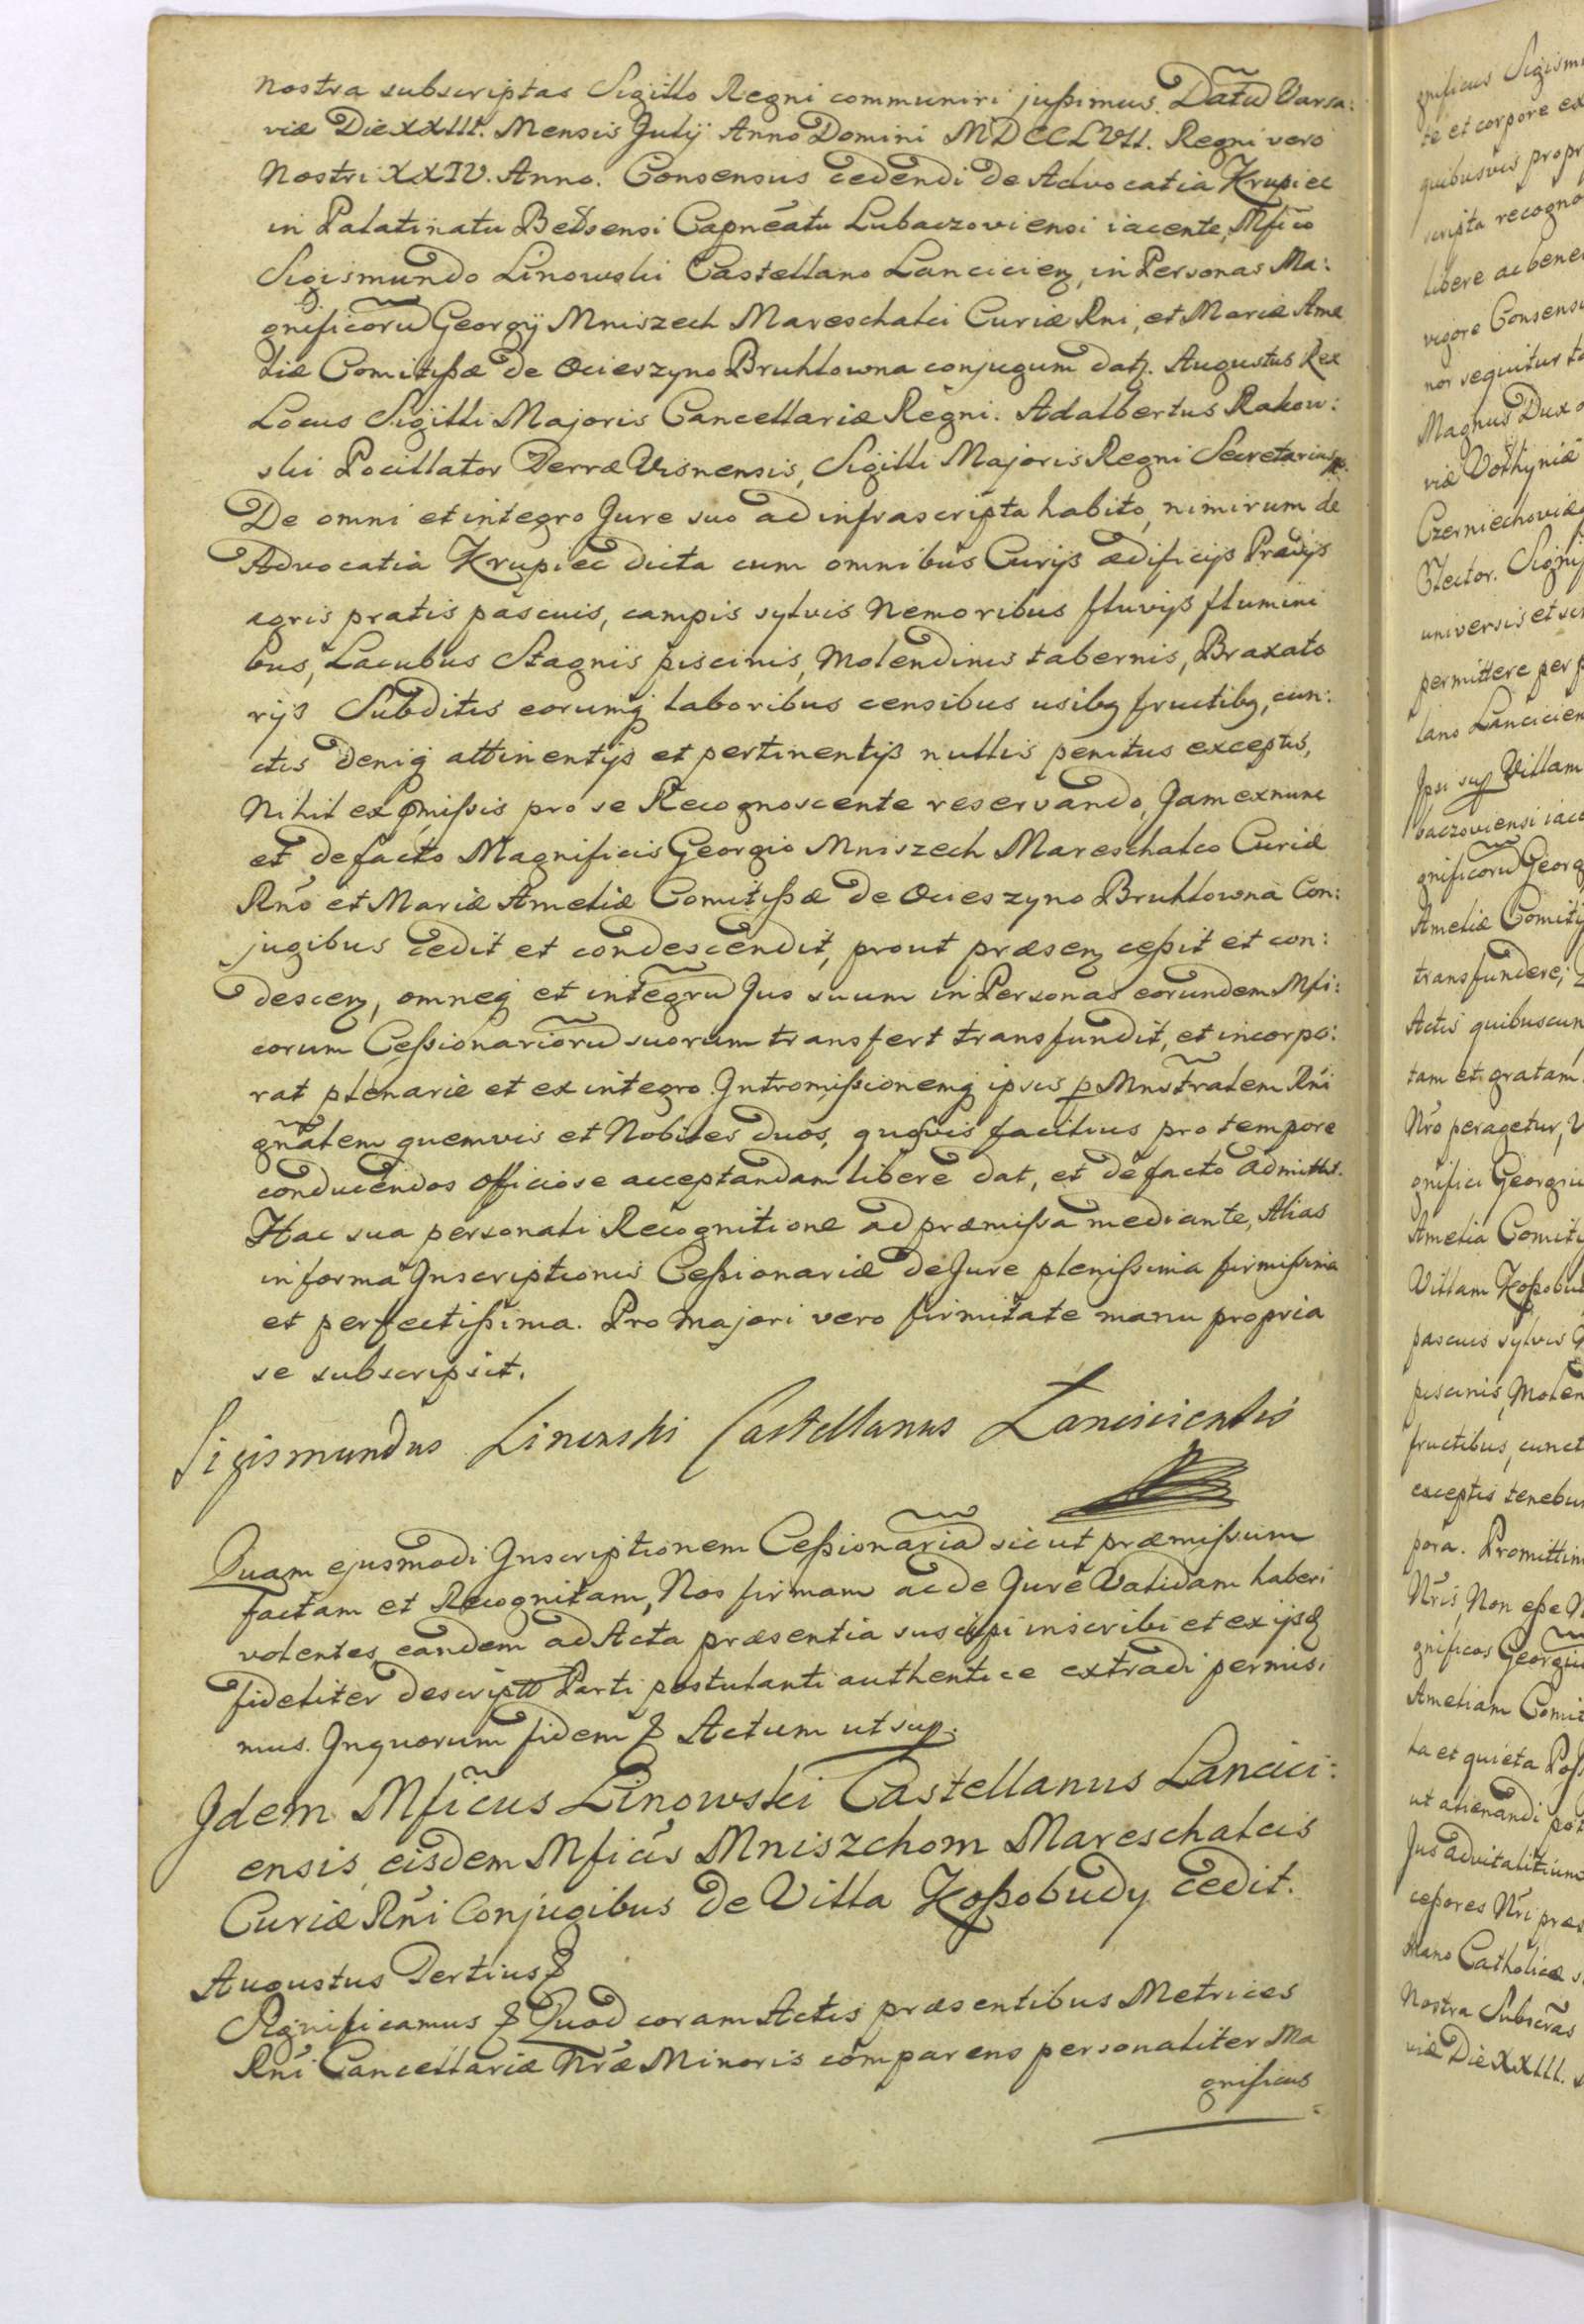 nostra subscriptas Sigillo Regni communiri jußimus. Datũ Varsa:
viæ Die XXIII. Mensis Julij Anno Domini MDCCLVII. Regni vero
Nostri XXIV. Anno. Consensus cedendi de Advocatia Krupiec
in Palatinatu Belzensi Capnéatu Lubaczoviensi iacente, Mfico
Sigismundo Linowski Castellano Lancicien, in Personas Ma:
gnificorũ Georgij Mniszech Mareschalci Curiæ Rni, et Mariæ Ame
liæ Comitißæ de Ocieszyno Bruhlowna conjugum dat. Augustus Rex
Locus Sigilli Majoris Cancellariæ Regni. Adalbertus Rakow:
ski Pocillator Terræ Visnensis, Sigilli Majoris Regni Secretarius
De omni et integro Jure suo ad infrascripta habito, nimirum de
Advocatia Krupiec dicta cum omnibus Curijs ædificijs Prædijs
agris pratis pascuis, campis sylvis Nemoribus fluvijs flumini
bus, Lacubus Stagnis piscinis, Molendinis tabernis, Braxato
rijs Subditis eorumq laboribus censibus usibq fructibq, cun:
ctis deniq attinentijs et pertinentijs nullis penitus exceptis,
Nihil ex pmißis pro se Recognoscente reservando, Jam exnunc
et de facto Magnificis Georgio Mniszech Mareschalco Curiæ
Rnó et Mariæ Ameliæ Comitißæ de Ocieszyno Bruhlowna Con:
jugibus cedit et condescendit, prout præsen ceßit et con:
descen, omneq et integrũ Jus suum in Personas eorundem Mfi:
corum Ceßionariorũ suorum transfert transfundit, et incorpo:
rat plenarie et ex integro. Intromißionemq ipsis p Mnstralem Rni
gnãlem quemvis et Nobiles duos, quosvis facilius pro tempore
conducendos officiose acceptandam libere dat, et de facto admittit.
Hac sua personali Recognitione ad præmißa mediante, Alias
in forma Inscriptionis Ceßionariæ de Jure plenißima firmißima
et perfectißima. Pro majori vero firmitate manu propria
se subscripsit.
Sigismundus Linowski Castellanus Lanciciensis
Quam ejusmodi Inscriptionem Ceßionariã sicut præmißum
factam et Recognitam, Nos firmam ac de Jure Validam haberi
volentes, eandem ad Acta præsentia suscipi inscribi et ex ijsd
fideliter descript Parti postulanti authentice extradi permisi
mus. In quorum fidem & Actum ut sup.
Idem Mficus Linowski Castellanus Lancici:
ensis eisdem Mficis Mniszchom Mareschalcis
Curiæ Rni Conjugibus de Villa Koßobudy cedit.
Augustus Tertius &
Significamus & Quod coram Actis præsentibus Metrices
Rni Cancellariæ Nræ Minoris comparens personaliter Ma
gnificus
gnificus Sigism
te et corpore ex
quibusvis propr
scripta recogno
libere ac bene
vigore Consens
nor sequitur t
Magnus Dux
viæ Volhyniæ
Czerniechoviæ
Elector. Signif
universis et si
permittere per p
lano Lancicien
Ipsi sup Villam
baczoviensi iac
gnificorũ Georg
Ameliæ Comiti
transfundere,
Actis quibuscun
tam et gratam
Nró peragetur, V
gnifici Georgiu
Amelia Comiti
Villam Koßobud
pascuis sylvis
piscinis, Molen
fructibus, cunct
exceptis tenebu
pora. Promittim
Nris, Non eße
gnificos Georgiũ
Ameliam Comit
ta et quieta Poß
ut alienandi pot
Jus advitalitium
ceßores Nri præs
mano Catholicæ
Nostra Subscras
viæ Die XXIII.